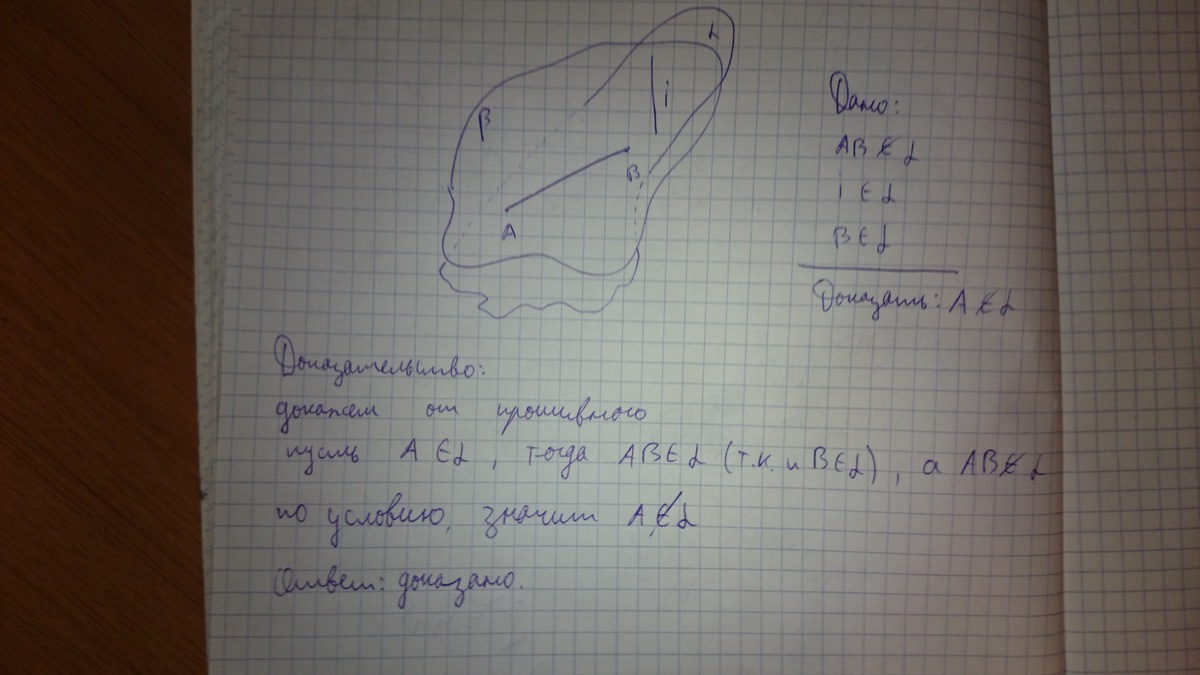 α
β
i
B
A
Дано:
AB ∉ α
i ∈ α
B ∈ α
Доказать: A ∉ α
Доказательство:
докажем от противного
пусть A ∈ α, тогда AB ∈ α (т.к. и B ∈ α), а AB ∉ α
по условию, значит A ∉ α
Ответ: доказано.